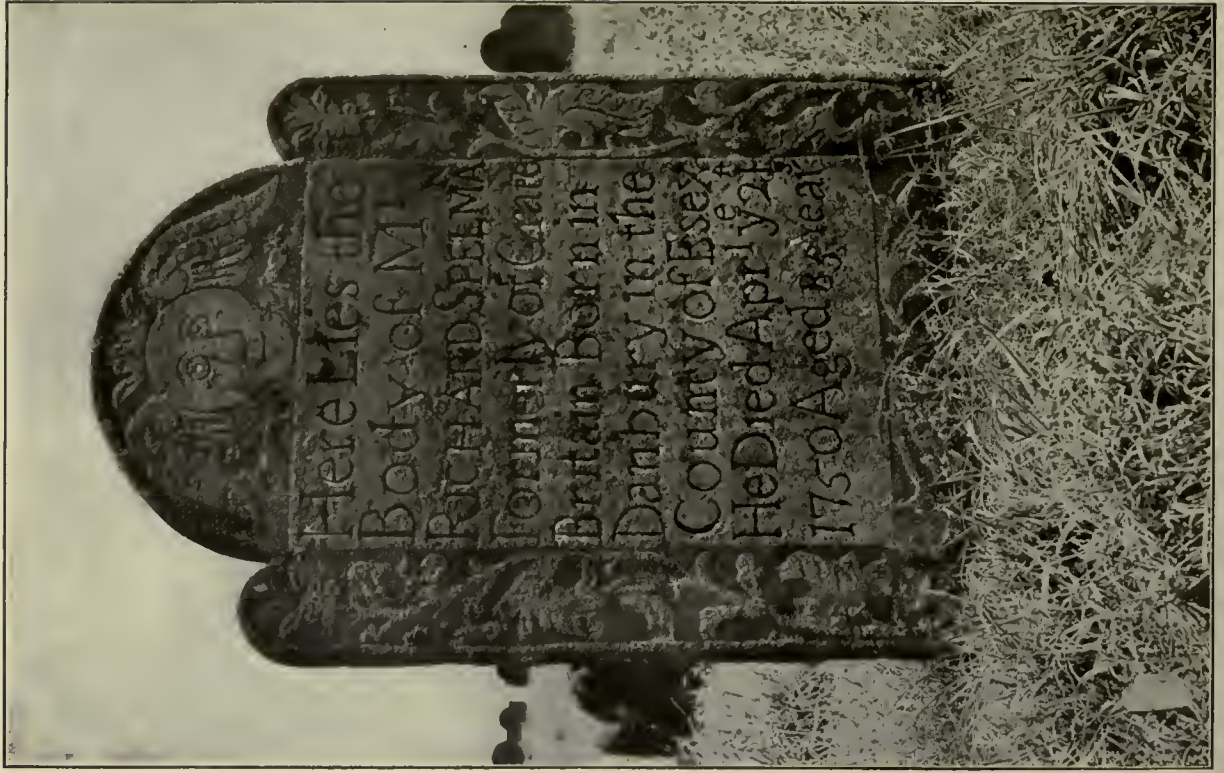 Here Lies the
Body of Mr
RICHARD SPELMAN
Formerly of Grate
Britain Born in
Danbury in the
County of Essex
He Died April ye 21
1750 Aged 85 Year